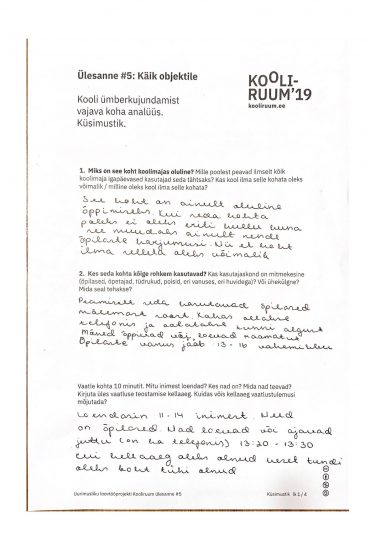 Ülesanne #5: Käik objektile
KOOLI-
RUUM'19
kooliruum.ee
Kooli ümberkujundamist
vajava koha analüüs.
Küsimustik.
1. Miks on see koht koolimajas oluline? Mille poolest peavad ilmselt kõik
koolimaja igapäevased kasutajad seda tähtsaks? Kas kool ilma selle kohata oleks
võimalik / milline oleks kool ilma selle kohata?
See koht on ainult oluline
õppimiseks. Kui seda kohta
poleks ei oleks eriti hullu kuna
see muudaks ainult nende
õpilaste harjumusi. Nii et koht
ilma selleta oleks võimalik
2. Kes seda kohta kõige rohkem kasutavad? Kas kasutajaskond on mitmekesine
(õpilased, õpetajad, tüdrukud, poisid, eri vanuses, eri huvidega)? Või ühekülgne?
Mida seal tehakse?
Peamiselt seda kasutavad õpilased
mõlemast soost. Kohas ollakse
telefonis ja oodatakse tunni algust
Mõned õpivad või loevad raamatut
Õpilaste vanus jääb 13-16 vahemikku
Vaatle kohta 10 minutit. Mitu inimest loendad? Kes nad on? Mida nad teevad?
Kirjuta üles vaatluse teostamise kellaaeg. Kuidas võis kellaaeg vaatlustulemusi
mõjutada?
Loendasin 11-14 inimest. Need
on õpilased. Nad loevad või ajavad
juttu (on ka telefonis) 13:20 - 13:30
Kui kellaaeg oleks olnud keset tundi
oleks koht tühi olnud
Uurimusliku loovtööprojekti Kooliruum ülesanne #5
Küsimustik lk 1 / 4